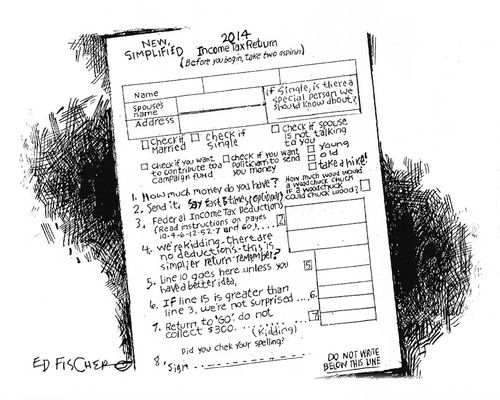 NEW, SIMPLIFIED
2014
Income Tax Return
(Before you begin, take two aspirin)
Name
Spouse's name
Address
if single, is there a special person we should know about?
Check if Married
Check if Single
Check if spouse is not talking to you
Check if you want to contribute to a campaign fund
Check if you want Politician to send you money
young
old
take a hike!
1. How much money do you have?
How much wood would a woodchuck chuck if a woodchuck could chuck wood?
2. Send it. Say fast 5 times (optional)
3. Federal Income Tax Deductions
(Read instructions on pages
10-4-6-12-52-7 and 60)....
4. we're kidding-there are
no deductions-this is
simplier return-remember?
5. Line 10 goes here unless you
have a better idea,
15
6. If line 15 is greater than
line 3, we're not surprised....6.
7. Return to "GO". do not
collect $300.
7
(Kidding)
Did you chek your spelling?
8. Sign
DO NOT WRITE
BELOW THIS LINE
ED FISCHER